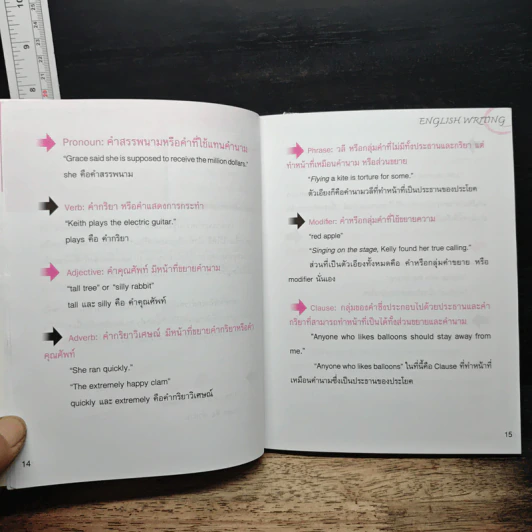 Pronoun: คำสรรพนามหรือคำที่ใช้แทนคำนาม
"Grace said she is supposed to receive the million dollars."
she คือคำสรรพนาม
Verb: คำกริยา หรือคำแสดงการกระทำ
"Keith plays the electric guitar."
plays คือ คำกริยา
Adjective: คำคุณศัพท์ มีหน้าที่ขยายคำนาม
"tall tree" or "silly rabbit"
tall และ silly คือ คำคุณศัพท์
Adverb: คำกริยาวิเศษณ์ มีหน้าที่ขยายคำกริยาหรือคำ
คุณศัพท์
"She ran quickly."
"The extremely happy clam"
quickly และ extremely คือคำกริยาวิเศษณ์
14
ENGLISH WRITING
Phrase: วลี หรือกลุ่มคำที่ไม่มีทั้งประธานและกริยา แต่
ทำหน้าที่เหมือนคำนาม หรือส่วนขยาย
"Flying a kite is torture for some."
ตัวเอียงก็คือคำนามวลีที่ทำหน้าที่เป็นประธานของประโยค
Modifier: คำหรือกลุ่มคำที่ใช้ขยายความ
"red apple"
"Singing on the stage, Kelly found her true calling."
ส่วนที่เป็นตัวเอียงทั้งหมดคือ คำหรือกลุ่มคำขยาย หรือ
modifier นั่นเอง
Clause: กลุ่มของคำซึ่งประกอบไปด้วยประธานและคำ
กริยาที่สามารถทำหน้าที่เป็นได้ทั้งส่วนขยายและคำนาม
"Anyone who likes balloons should stay away from
me."
"Anyone who likes balloons" ในที่นี้คือ Clause ที่ทำหน้าที่
เหมือนคำนามซึ่งเป็นประธานของประโยค
15